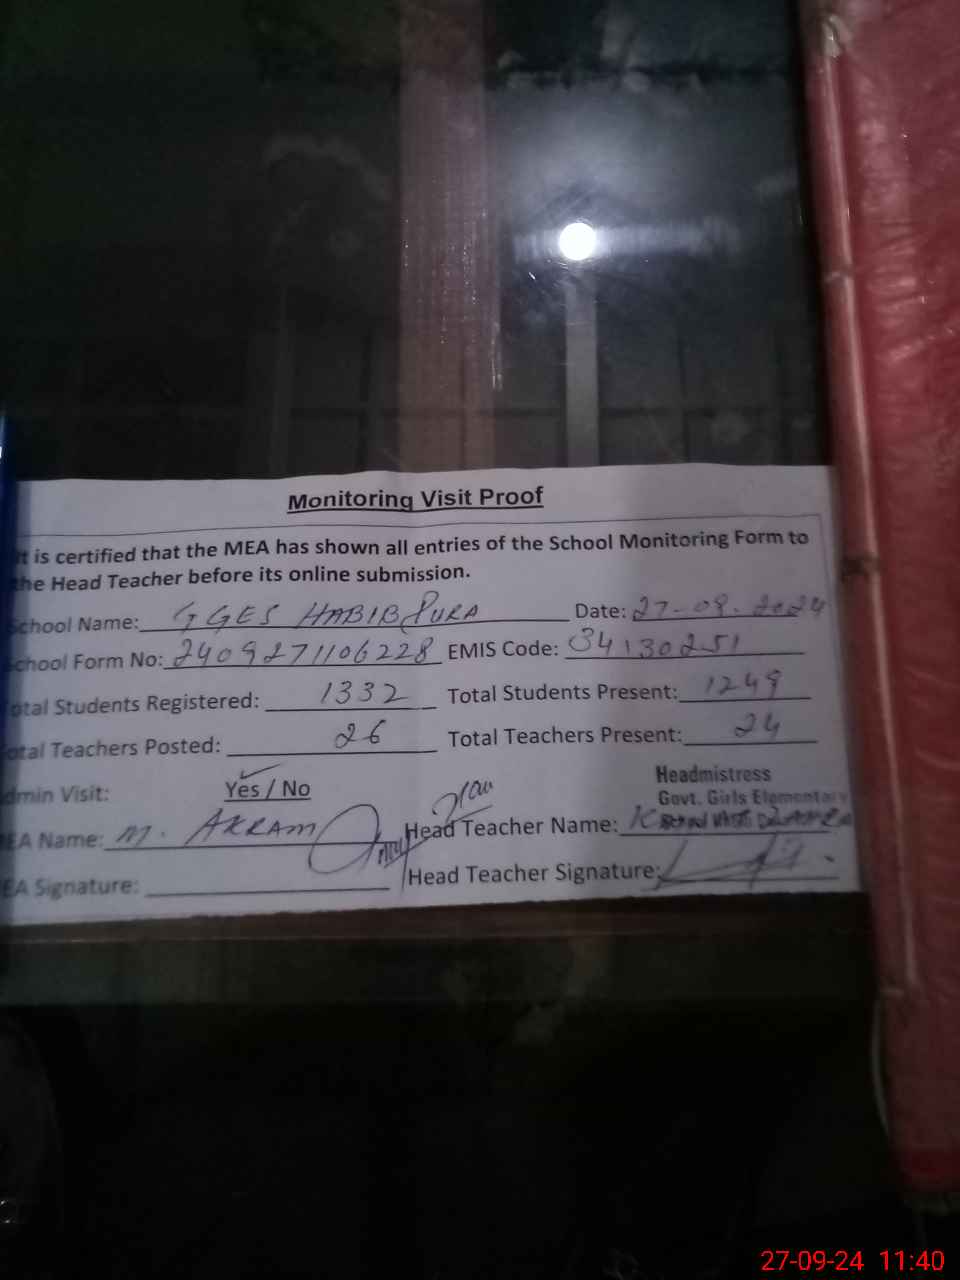 Monitoring Visit Proof
It is certified that the MEA has shown all entries of the School Monitoring Form to
the Head Teacher before its online submission.
School Name: GGES HABIB PURA Date: 27-09-2024
School Form No: 2409271106228 EMIS Code: 34130251
Total Students Registered: 1332 Total Students Present: 1249
Total Teachers Posted: 26 Total Teachers Present: 24
Admin Visit: Yes / No
Headmistress
Govt. Girls Elementary
MEA Name: M. AKRAM Head Teacher Name:
MEA Signature: Head Teacher Signature:
27-09-24 11:40